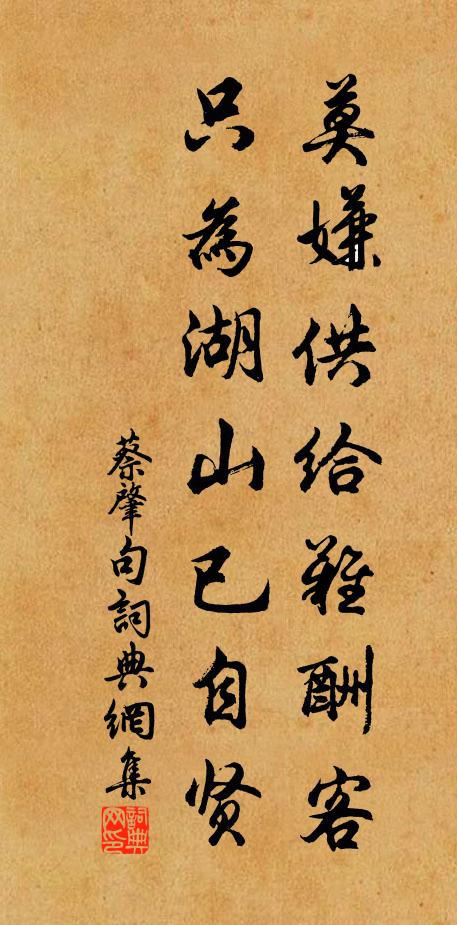 莫嫌供给难酬客
只為湖山已自贤
蔡肇句詞典網集
詞典网印